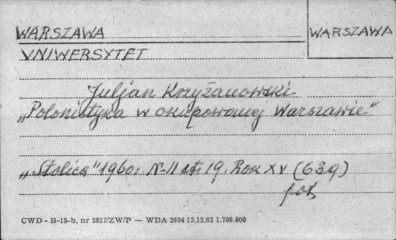 WARSZAWA
WARSZAWA
UNIWERSYTET
Juljan Krzyżanowski
„Polonistyka w okupowanej Warszawie"
„Stolica" 1960r. N-11 str. 19. Rok XV (639)
fot.
CWD - B-15-b, nr 2827/ZW/P — WDA 2604 13.12.62 1.700.000